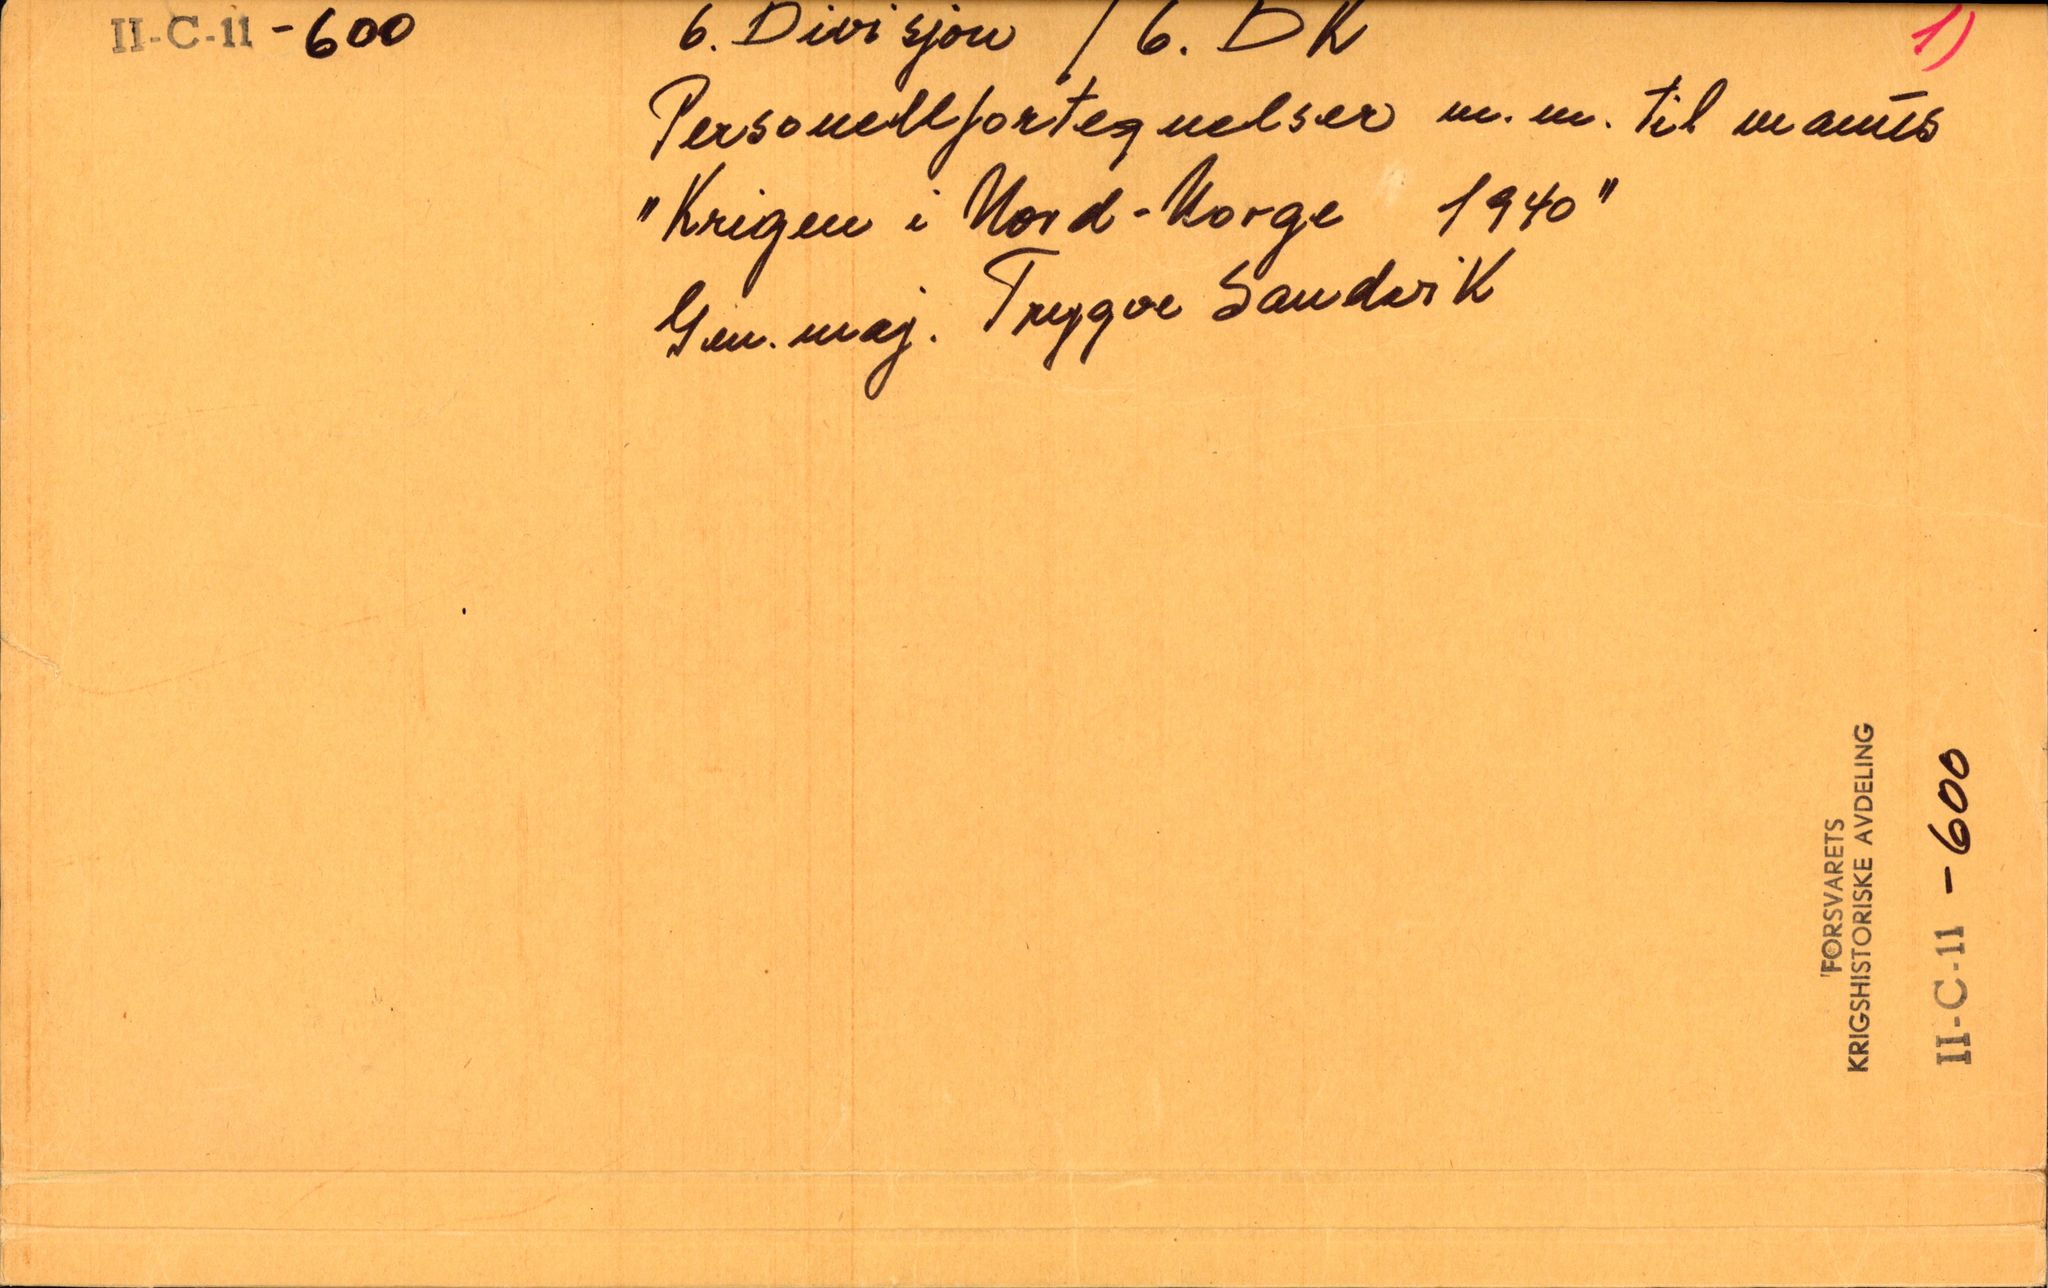 II-C-11 - 600
6. Divisjon / 6. DK
1)
Personellfortegnelser m.m. til manus
"Krigen i Nord-Norge 1940"
Gen.maj. Trygve Sandvik
FORSVARETS
KRIGSHISTORISKE AVDELING
II-C-11 - 600